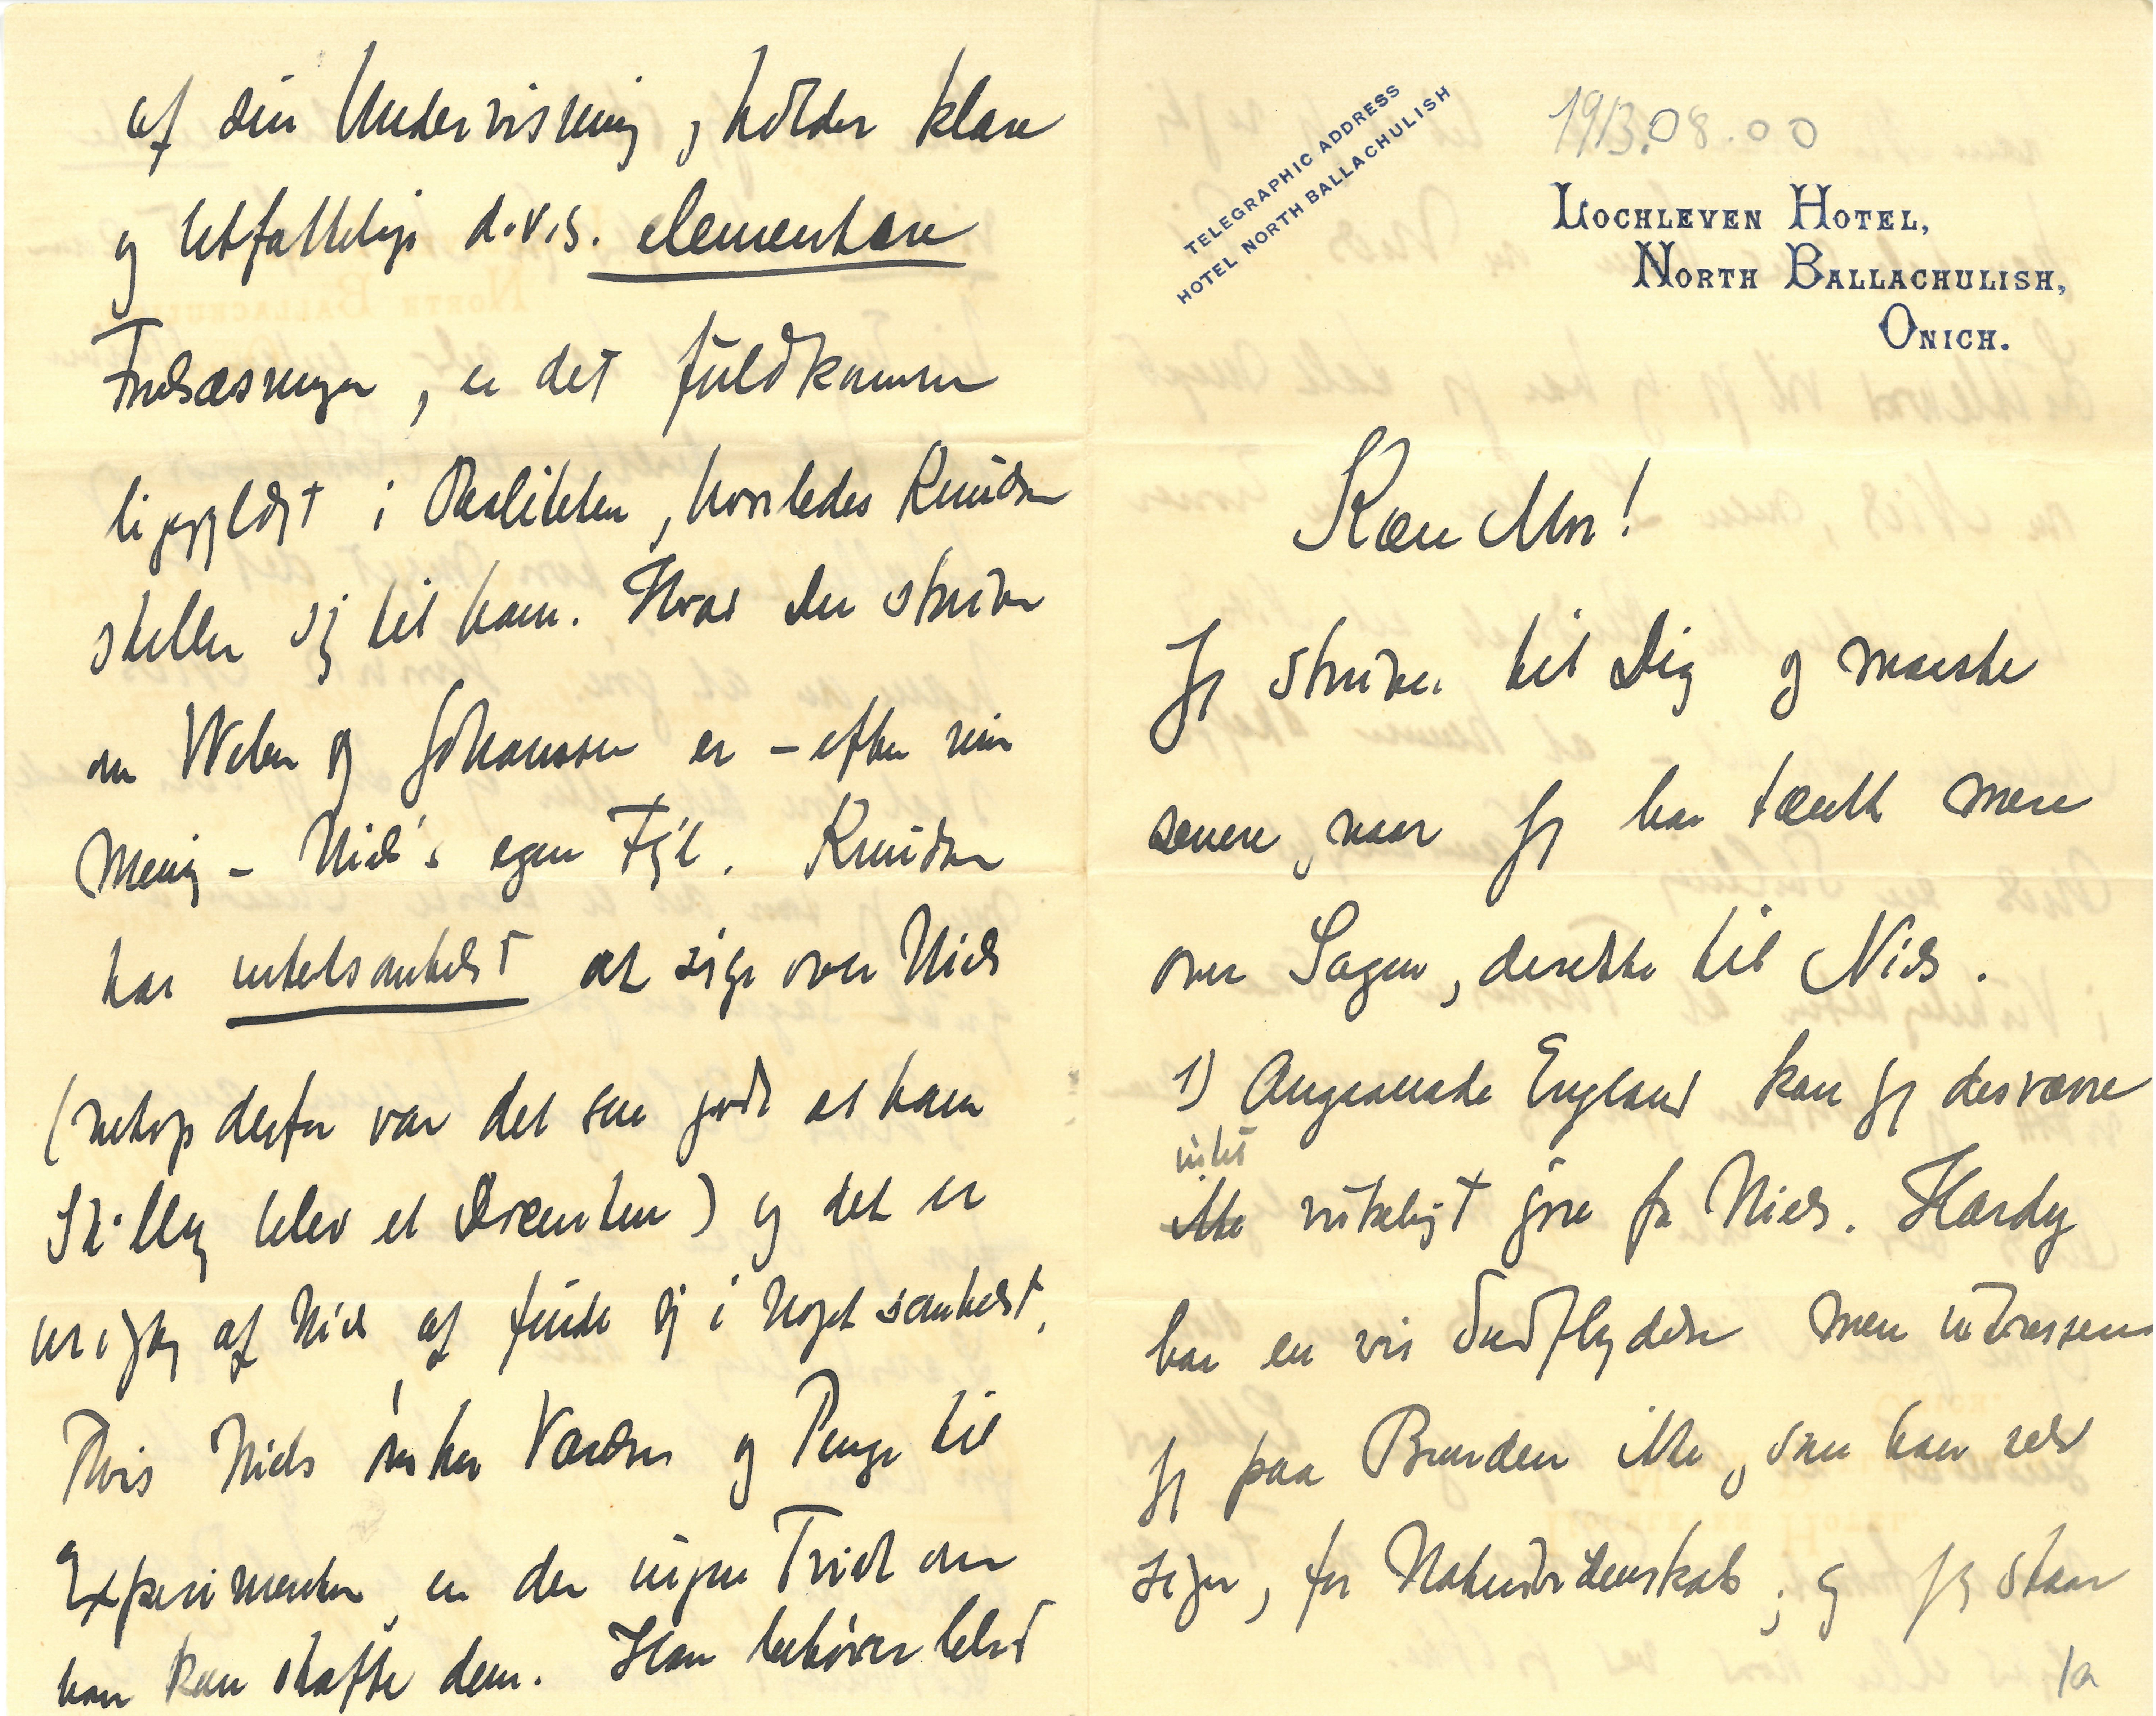 af sin Undervisning, holder klare
og letfattelige d.v.s. elementære
Forelæsninger, er det fuldkommen
ligegyldigt i Realiteten, hvorledes Knudsen
stiller sig til ham. Hvad Du skriver
om Weber og Johansen er - efter min
Mening - Niels's egen Fejl. Knudsen
har intetsomhelst at sige over Niels
(netop derfor var det saa godt at hans
Stilling blev et Docentur) og det er
urigtig af Niels at finde sig i noget somhelst.
Hvis Niels ønsker Værelser og Penge til
Experimenter, er der ingen Tvivl om
han kan skaffe dem. Han behøver blot
TELEGRAPHIC ADDRESS
HOTEL NORTH BALLACHULISH
1913.08.00
LOCHLEVEN HOTEL,
NORTH BALLACHULISH,
ONICH.
Kære Mor!
Jeg skriver til Dig og maaske
senere, naar jeg har tænkt mere
over Sagen, derefter til Niels.
1) Angaaende England kan jeg desværre
intet
ikke virkeligt gøre for Niels. Hardy
har en vis Indflydelse men interesserer
sig paa Bunden ikke, som han selv
siger, for Naturvidenskab; og jeg staar
1a